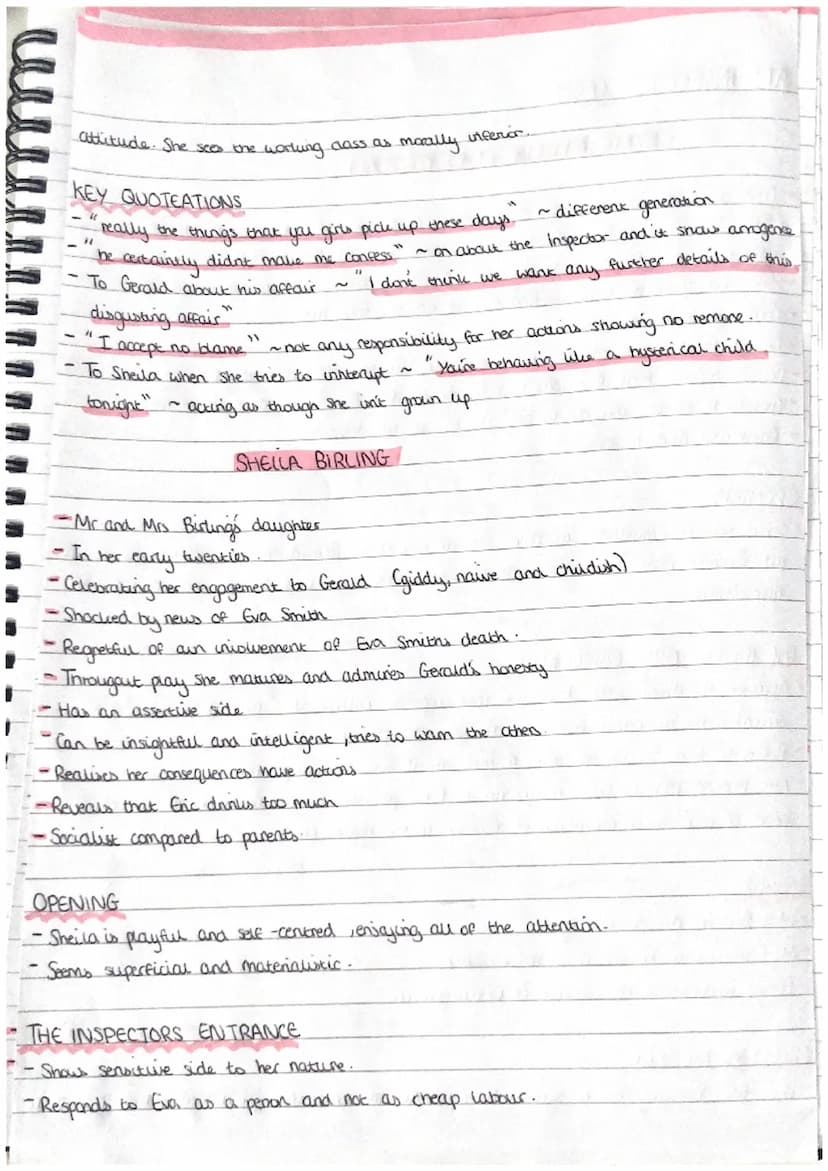 attitude. She sees the working class as morally inferior.
KEY QUOTEATIONS
- "really the things that you girls pick up these days" ~ different generation
- "he certaintly didnt make me confess" ~ on about the Inspector and it shows arrogence
- To Gerald about his affair ~ "I dont think we want any further details of this
disgusting affair"
- "I accept no blame" ~ not any responsibility for her actions showing no remorse.
- To Sheila when she tries to interupt ~ "You're behaving like a hysterical child
tonight" ~ acting as though she isn't grown up
SHEILA BIRLING
- Mr and Mrs Birling's daughter
- In her early twenties.
- Celebrating her engagement to Gerald (giddy, naive and childish)
- Shocked by news of Eva Smith
- Regretful of own involvement of Eva Smiths death.
- Througout play she matures and admires Gerald's honesty
- Has an assertive side
- Can be insightful and intelligent, tries to warn the others
- Realises her consequences have actions
- Reveals that Eric drinks too much
- Socialist compared to parents.
OPENING
- Sheila is playful and self-centred, enjoying all of the attention.
- Seems superficial and materialistic.
- THE INSPECTORS ENTRANCE
- Shows sensitive side to her nature.
- Responds to Eva as a person and not as cheap labour.